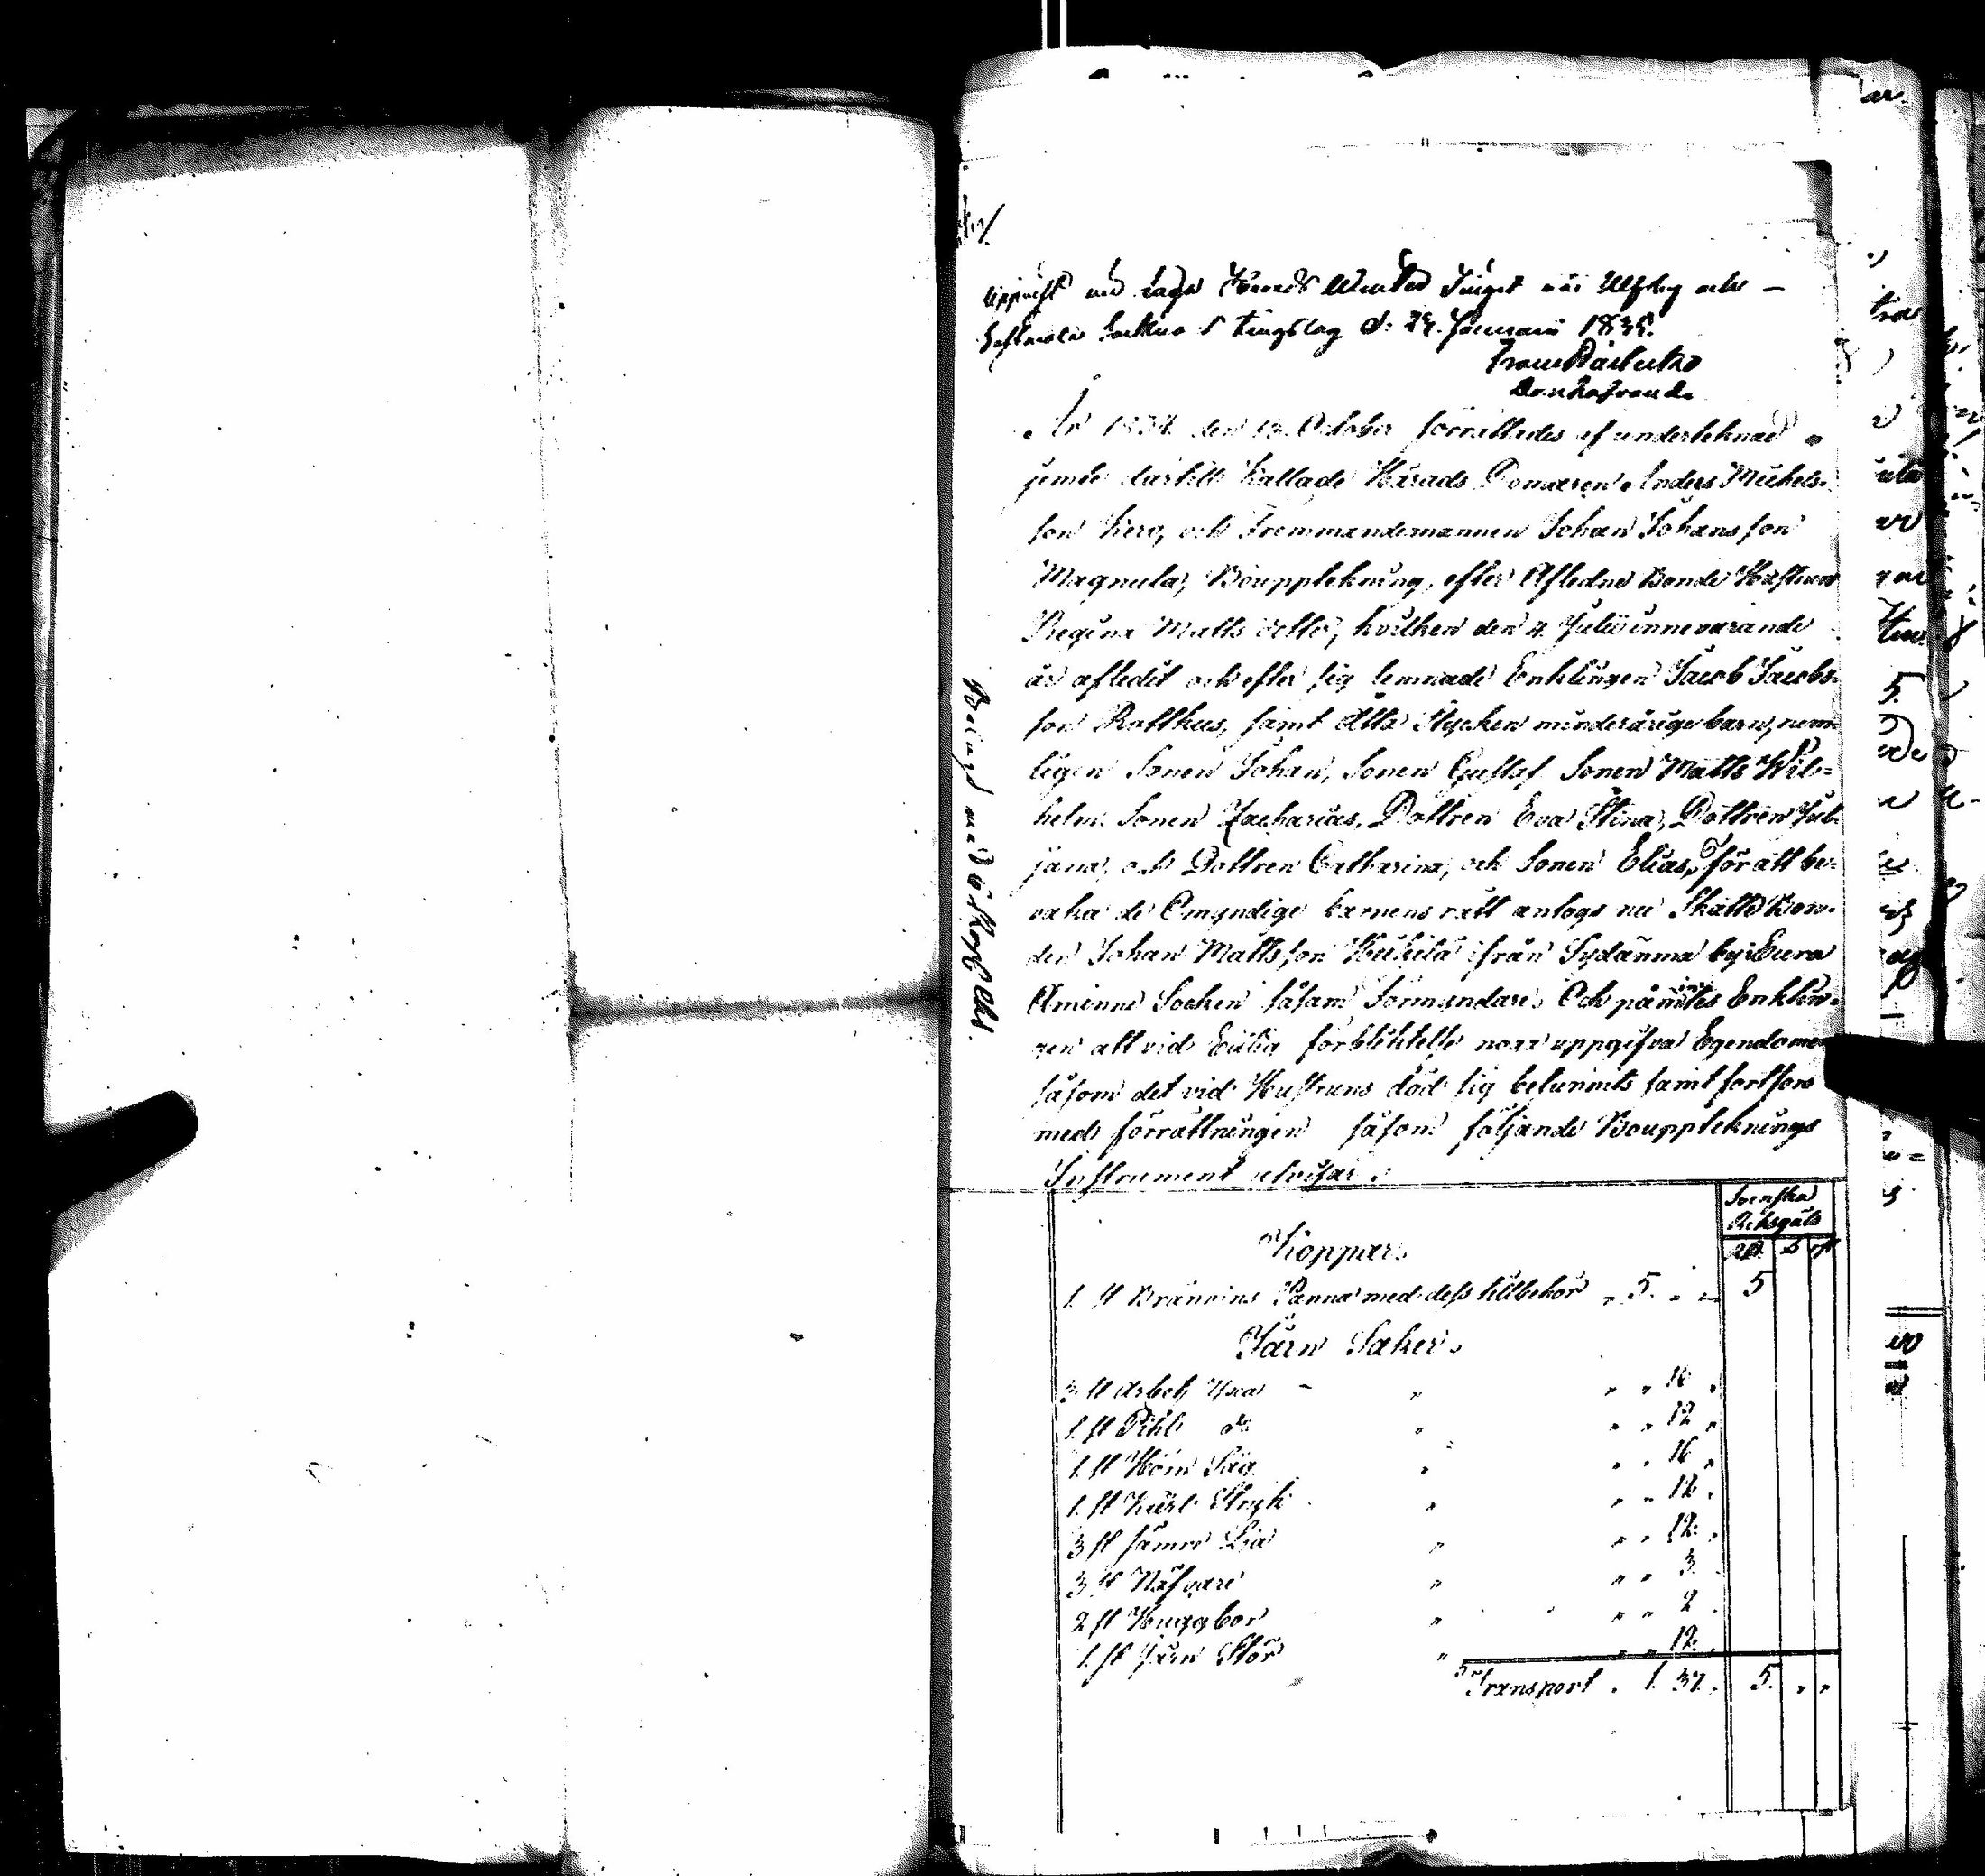 Uppvist vid Laga Härads Winter Tinget vid Ulfsby och
Socknars Tingslag d: 24. Januarii 1835.
År 1834 den 13 October förrättades af underteknad
jemte dertill kallade Härads Domaren Anders Michels-
son Kero, och Fremmandemannen Johan Johansson
Magnula, Bouppteknung, efter Afledne Bonde Hustrun
Regina Matts dotter, hvilken den 4. Julii innevarande
år afledit och efter sig lemnade Enklingen Jacob Jacobs-
son Rotthus, samt Åtta Stycken minderårige barn, nem-
ligen Sonen Johan, Sonen Gustaf, Sonen Matts Wil=
helm. Sonen Zacharias, Dottren Eva Stina, Dottren Jul-
jana, och Dottren Catharina, och Sonen Elias, För att be=
vaka de Omyndige barnens rätt antogs nu Skatte Bon-
den Johan Mattsson Huhtila ifrån Sydänma by i Eura
Åminne Socken såsom Förmyndare. Och påmintes Enklin-
gen att vid Edelig förpliktelse noga uppgifva Egendomen
såsom det vid Hustruns död sig befunnits samt fortfors
med förrättningen såsom följande Boupptecknings
Instrument utvisar:
Bevarad med ed
Svenska
Riksgäls
RD. S rst
Koppar.
1. st Bränvins Panna med dess tillbehör „ 5. „ „ 5
Järn Saker.
3 st Arbets Yxa „ „ „ 16 „
1. st Pihl do „ „ „ 12 „
1. st Höm Såg „ „ „ 16 „
1. st Stryk „ „ „ 12 „
3 st sämre Lia „ „ „ 12 „
3 st Nafvare „ „ „ 3 „
2 st Huggbor „ „ „ 2 „
1. st Järn Stör „ „ „ 12 „
Transport „ 1. 37. 5. „ „